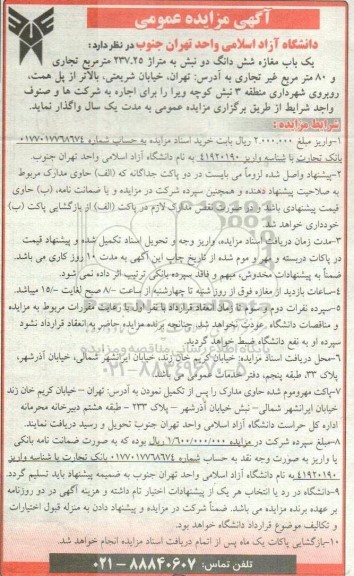 آگهی مزایده عمومی
دانشگاه آزاد اسلامی واحد تهران جنوب در نظر دارد:
یک باب مغازه شش دانگ دو نبش به متراژ ۲۳۷.۲۵ مترمربع تجاری
و ۸۰ متر مربع غیر تجاری به آدرس: تهران، خیابان شریعتی، بالاتر از پل همت،
روبروی شهرداری منطقه ۳ نبش کوچه ویرا را برای اجاره به شرکت ها و صنوف
واجد شرایط از طریق برگزاری مزایده عمومی به مدت یک سال واگذار نماید.
شرایط مزایده:
۱-واریز مبلغ ۲.۰۰۰.۰۰۰ ریال بابت خرید اسناد مزایده به حساب شماره ۰۱۷۷۰۱۷۷۶۸۶۷۴
بانک تجارت با شناسه واریز ۴۱۹۲۰۱۹۰ به نام دانشگاه آزاد اسلامی واحد تهران جنوب.
۲-پیشنهاد واصل شده لزوماً می بایست در دو پاکت جداگانه که (الف) حاوی مدارک مربوط
به صلاحیت پیشنهاد دهنده و همچنین سپرده شرکت در مزایده و یا ضمانت نامه، (ب) حاوی
قیمت پیشنهادی باشد و در صورت نقص مدارک لازم در پاکت (الف) از بازگشایی پاکت (ب)
خودداری خواهد شد.
۳-مدت زمان دریافت اسناد مزایده، واریز وجه و تحویل اسناد تکمیل شده و پیشنهاد قیمت
در پاکات دربسته و مهر و موم شده از تاریخ چاپ این آگهی به مدت ۱۰ روز کاری می باشد.
ضمناً به پیشنهادات مخدوش، مبهم و فاقد سپرده بانکی ترتیب اثر داده نمی شود.
۴-ساعات بازدید از مغازه فوق از روز شنبه تا چهارشنبه از ساعت ۸/۰۰ صبح لغایت ۱۵/۰۰ میباشد.
۵-سپرده نفرات دوم و سوم تا زمان انعقاد قرارداد با نفر اول با رعایت مقررات مربوط به مزایده
و مناقصات دانشگاه عودت نخواهد شد. چنانچه برنده مزایده حاضر به انعقاد قرارداد نشود
سپرده او به نفع دانشگاه ضبط خواهد گردید.
۶-محل دریافت اسناد مزایده: خیابان کریم خان زند، خیابان ایرانشهر شمالی، خیابان آذرشهر،
پلاک ۲۳، طبقه پنجم، دفتر خدمات عمومی می باشد.
۷-پاکت مهروموم شده حاوی مدارک را پس از تکمیل نمودن به آدرس: تهران – خیابان کریم خان زند
خیابان ایرانشهر شمالی– نبش خیابان آذرشهر – پلاک ۲۳۳ – طبقه هشتم دبیرخانه محرمانه
اداره کل حراست دانشگاه آزاد اسلامی واحد تهران جنوب تحویل و رسید دریافت نمایند.
۸-مبلغ سپرده شرکت در مزایده ۱/۶۰۰/۰۰۰/۰۰۰ ریال بوده که به صورت ضمانت نامه بانکی
یا واریز به صورت وجه نقد به حساب شماره ۰۱۷۷۰۱۷۷۶۸۶۷۴ بانک تجارت با شناسه واریز
۴۱۹۲۰۱۹۰ به نام دانشگاه آزاد اسلامی واحد تهران جنوب به ضمیمه پیشنهاد باید تسلیم گردد.
۹-دانشگاه در رد یا انتخاب هر یک از پیشنهادات اختیار تام داشته و هزینه آگهی در دو روزنامه
بر عهده برنده مزایده می باشد. ضمناً شرکت در مزایده و پیشنهاد دادن به منزله قبول اختیارات
و تکالیف موضوع قرارداد دانشگاه خواهد بود.
۱۰-بازگشایی پاکات یک ماه پس از اتمام دریافت اسناد مزایده انجام خواهد شد.
تلفن تماس: ۸۸۸۴۰۶۰۷ – ۰۲۱